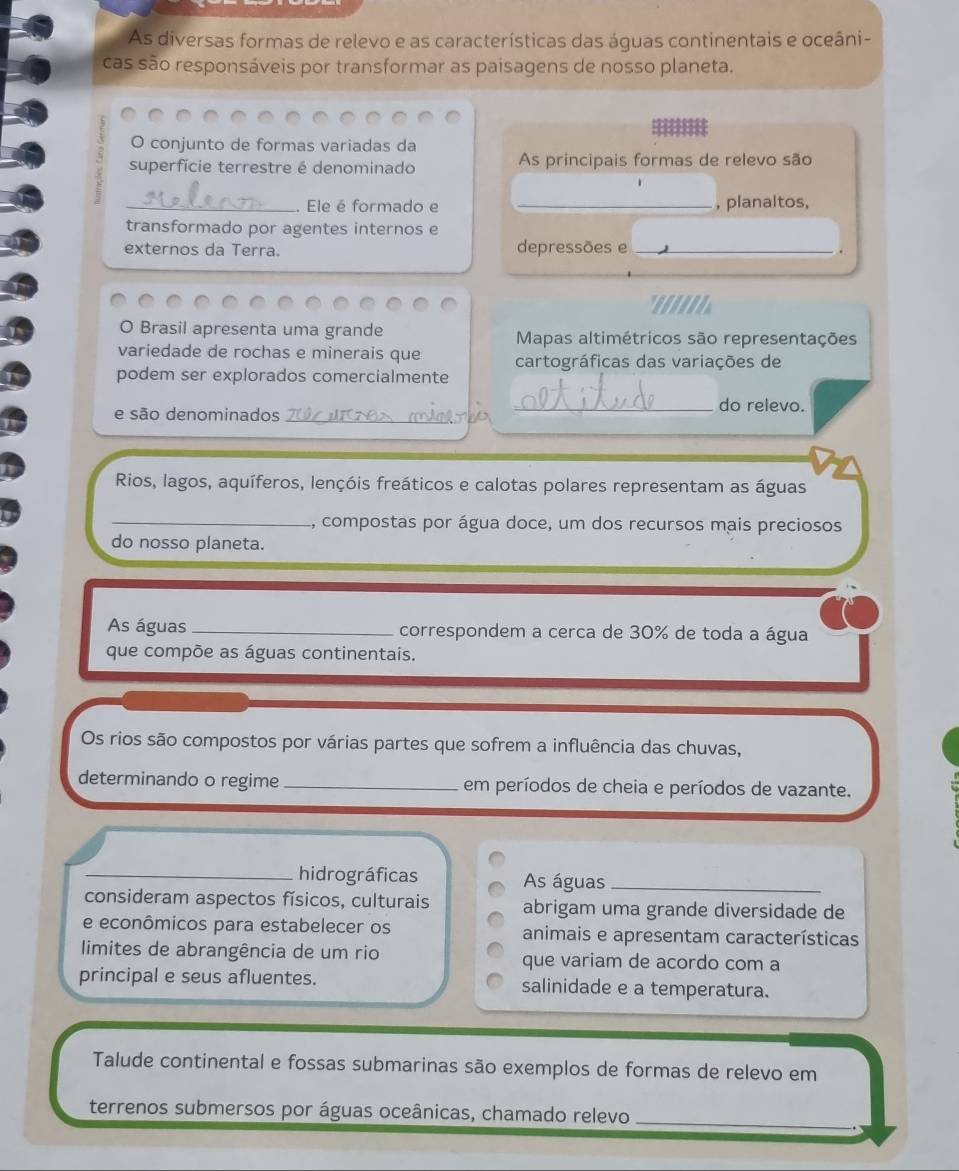 As diversas formas de relevo e as características das águas continentais e oceâni-
cas são responsáveis por transformar as paisagens de nosso planeta.
O conjunto de formas variadas da
superfície terrestre é denominado
relevo. Ele é formado e
transformado por agentes internos e
externos da Terra.
As principais formas de relevo são
____, planaltos,
depressões e ____.
O Brasil apresenta uma grande
variedade de rochas e minerais que
podem ser explorados comercialmente
e são denominados recursos minerais
Mapas altimétricos são representações
cartográficas das variações de
altitude do relevo.
Rios, lagos, aquíferos, lençóis freáticos e calotas polares representam as águas
____, compostas por água doce, um dos recursos mais preciosos
do nosso planeta.
As águas ____ correspondem a cerca de 30% de toda a água
que compõe as águas continentais.
Os rios são compostos por várias partes que sofrem a influência das chuvas,
determinando o regime ____ em períodos de cheia e períodos de vazante.
____ hidrográficas
consideram aspectos físicos, culturais
e econômicos para estabelecer os
limites de abrangência de um rio
principal e seus afluentes.
As águas ____
abrigam uma grande diversidade de
animais e apresentam características
que variam de acordo com a
salinidade e a temperatura.
Talude continental e fossas submarinas são exemplos de formas de relevo em
terrenos submersos por águas oceânicas, chamado relevo ____.